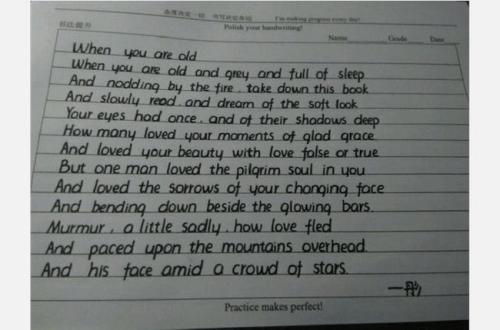 I'm making progress every day!
书法提升
Polish your handwriting!
Name Grade Date
When you are old
When you are old and grey and full of sleep
And nodding by the fire. take down this book
And slowly read. and dream of the soft look
Your eyes had once. and of their shadows deep
How many loved your moments of glad grace
And loved your beauty with love false or true
But one man loved the pilgrim soul in you
And loved the sorrows of your changing face
And bending down beside the glowing bars.
Murmur, a little sadly. how love fled
And paced upon the mountains overhead.
And his face amid a crowd of stars.
Practice makes perfect!